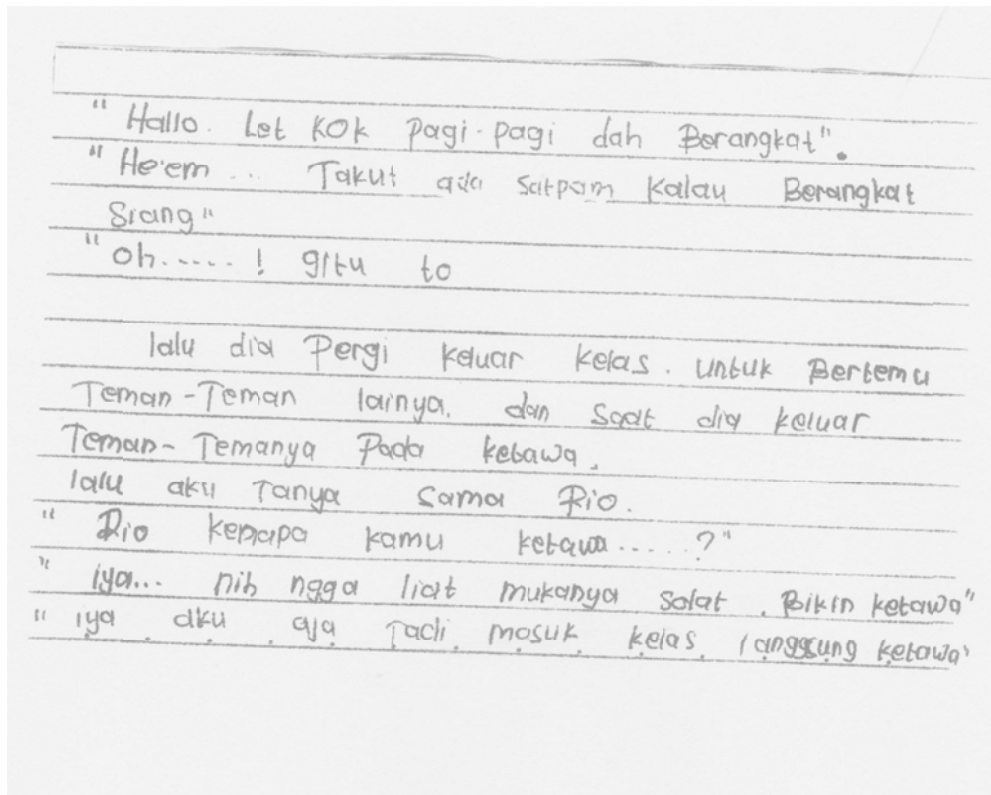 "Hallo. Let Kok pagi-pagi dah Berangkat".
"He'em... Takut ada satpam kalau Berangkat
Siang"
"Oh.....! gitu to
lalu dia Pergi keluar kelas. untuk Bertemu
Teman-Teman lainya. dan saat dia keluar
Teman-Temanya Pada ketawa.
lalu aku Tanya sama Rio.
"Rio kenapa kamu ketawa.....?"
"iya... nih ngga liat mukanya Salat. Bikin ketawa"
"iya aku aja Tadi masuk kelas langgsung ketawa"